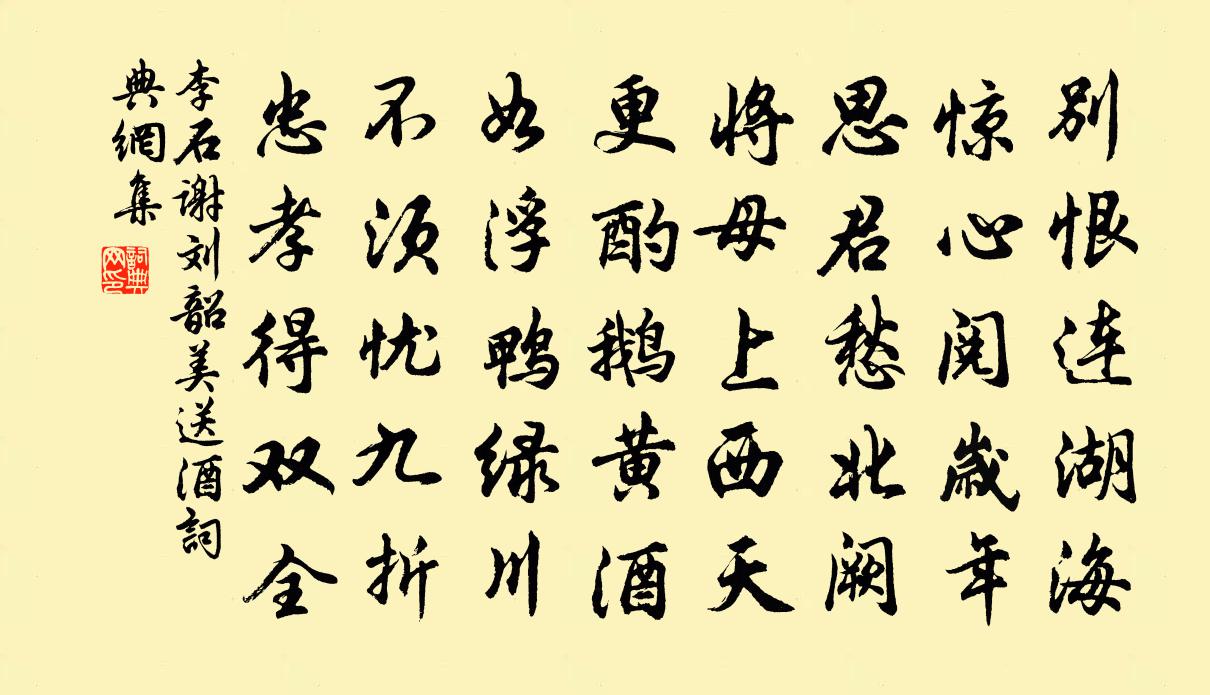 别恨连湖海
惊心阅岁年
思君愁北阙
将母上西天
更酌鹅黄酒
如浮鸭绿川
不须忧九折
忠孝得双全
李石谢刘韶美送酒詞
典網集
詞典
网印